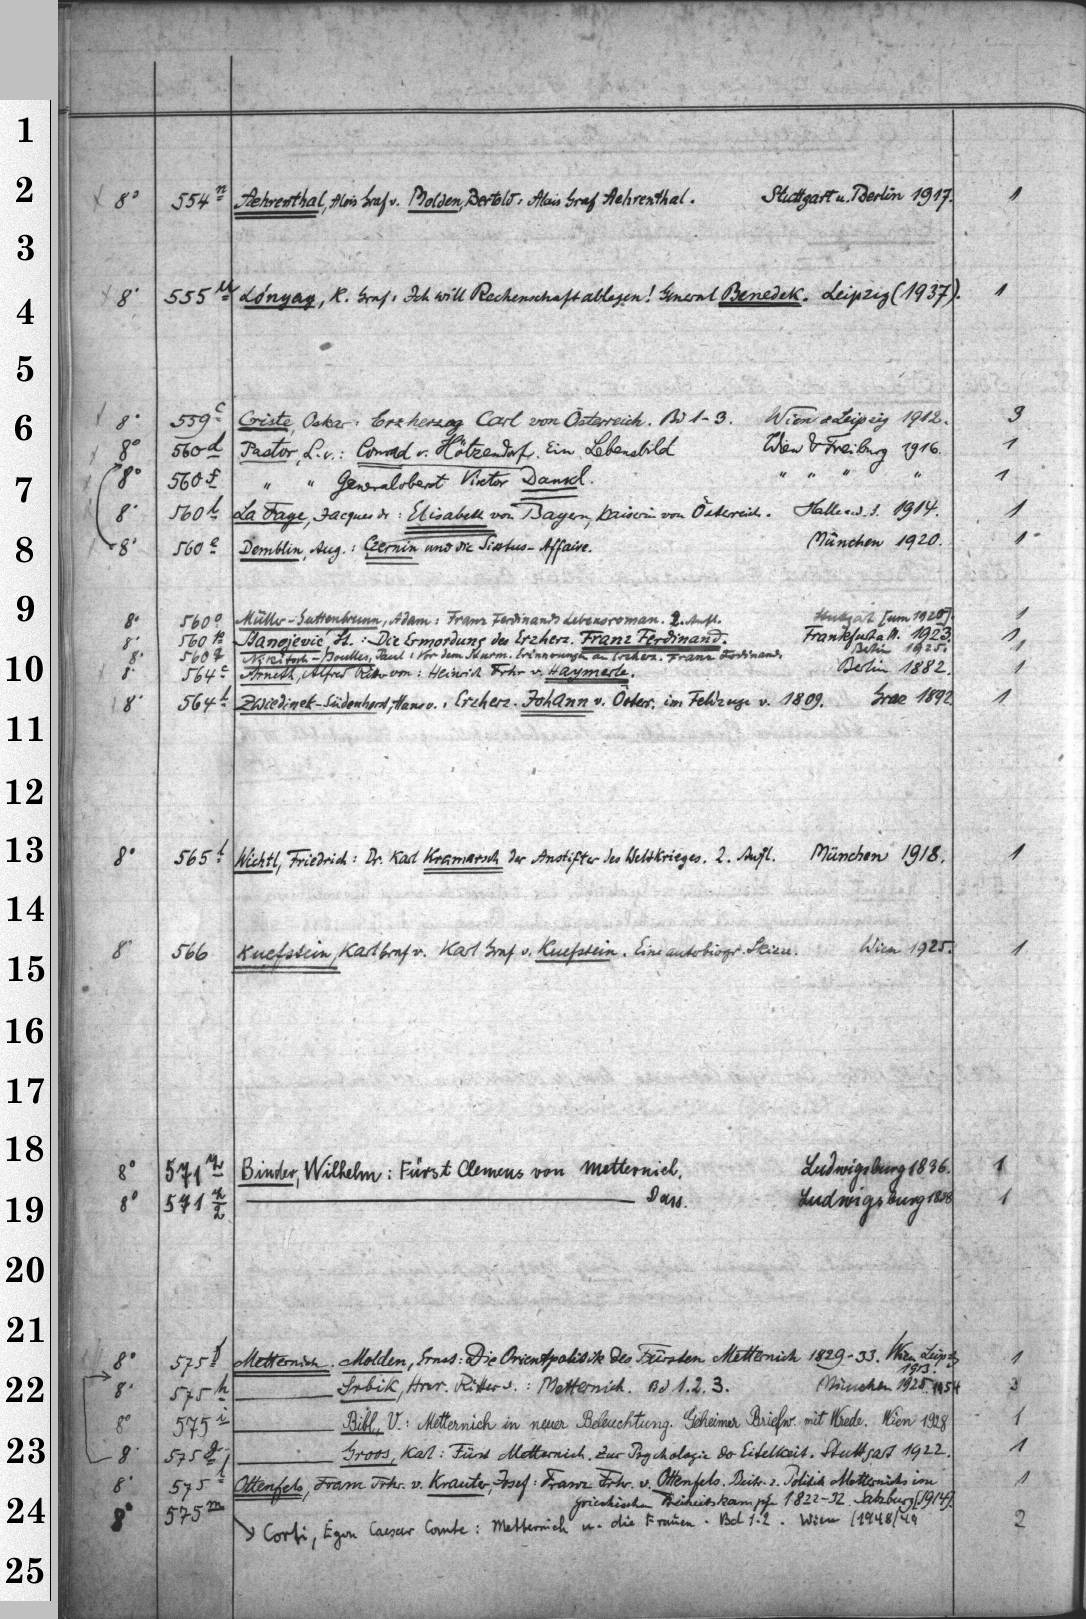 1
2
8° 554 n Aehrenthal, Alois Graf v. Molden, Bertold: Alois Graf Aehrenthal. Stuttgart u. Berlin 1917. 1
3
8° 555 Lónyay, K. Graf: Ich will Rechenschaft ablegen! General Benedek. Leipzig (1937). 1
4
5
8° 559 c Criste, Oskar: Erzherzog Carl von Österreich. Bd 1-3. Wien u. Leipzig 1912. 3
6
8° 560 d Pastor, L. v.: Conrad v. Hötzendorf. Ein Lebensbild Wien & Freiburg 1916. 1
8° 560 f " " Generaloberst Viktor Dankl. " " " " 1
7
8° 560 h La Faye, Jacques de: Elisabeth von Bayern, Kaiserin von Österreich. Halle a. d. S. 1914. 1
8° 560 e Demblin, Aug.: Czernin und die Sixtus-Affaire. München 1920. 1
8
9
8° 560 o Müller-Guttenbrunn, Adam: Franz Ferdinands Lebensroman. 2. Aufl. Stuttgart [um 1920]. 1
8° 560 p Stanojević, St.: Die Ermordung des Erzherz. Franz Ferdinand. Frankfurt a M. 1923. 1
8° 560 q Paul: Vor dem Sturm. Erinnerungen an Erzherz. Franz Ferdinand. Berlin 1925. 1
10
8° 564 c Arneth, Alfred Ritter von: Heinrich Frhr v. Haymerle. Berlin 1882. 1
8° 564 h Zwiedinek-Südenhorst, Hans v.: Erzherz. Johann v. Österr. im Feldzuge v. 1809. Graz 1892 1
11
12
13
8° 565 l Wichtl, Friedrich: Dr. Karl Kramarsch der Anstifter des Weltkrieges. 2. Aufl. München 1918. 1
14
8° 566 Kuefstein, Karl Graf v. Karl Graf v. Kuefstein. Eine autobiogr. Skizze. Wien 1925. 1
15
16
17
18
8° 571 Binder, Wilhelm: Fürst Clemens von Metternich. Ludwigsburg 1836. 1
8° 571 Dass. Ludwigsburg 1838 1
19
20
21
8° 575 f Metternich. Molden, Ernst: Die Orientpolitik des Fürsten Metternich 1829-33. Wien Leipzig
1913. 1
22
8° 575 h Srbik, Heinr. Ritter v.: Metternich. Bd 1.2.3. München 1925, 1954 3
8° 575 i Bibl, V.: Metternich in neuer Beleuchtung. Geheimer Briefw. mit Wrede. Wien 1928 1
23
8° 575 g Groos, Karl: Fürst Metternich. Zur Psychologie der Eitelkeit. Stuttgart 1922. 1
8° 575 l Ottenfels, Franz Frhr. v. Krauter, Josef: Franz Frhr. v. Ottenfels. Beitr. z. Politik Metternichs im 1
griechischen Freiheitskampfe 1822-32 Salzburg [1914].
24
8° 575 m Corti, Egon Caesar Comte: Metternich u. die Frauen. Bd 1.2. Wien (1948/49 2
25